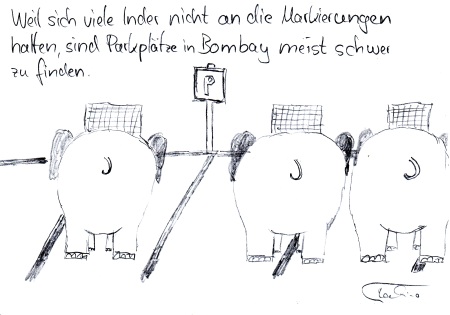 Weil sich viele Inder nicht an die Markierungen
halten, sind Parkplätze in Bombay meist schwer
zu finden.
P